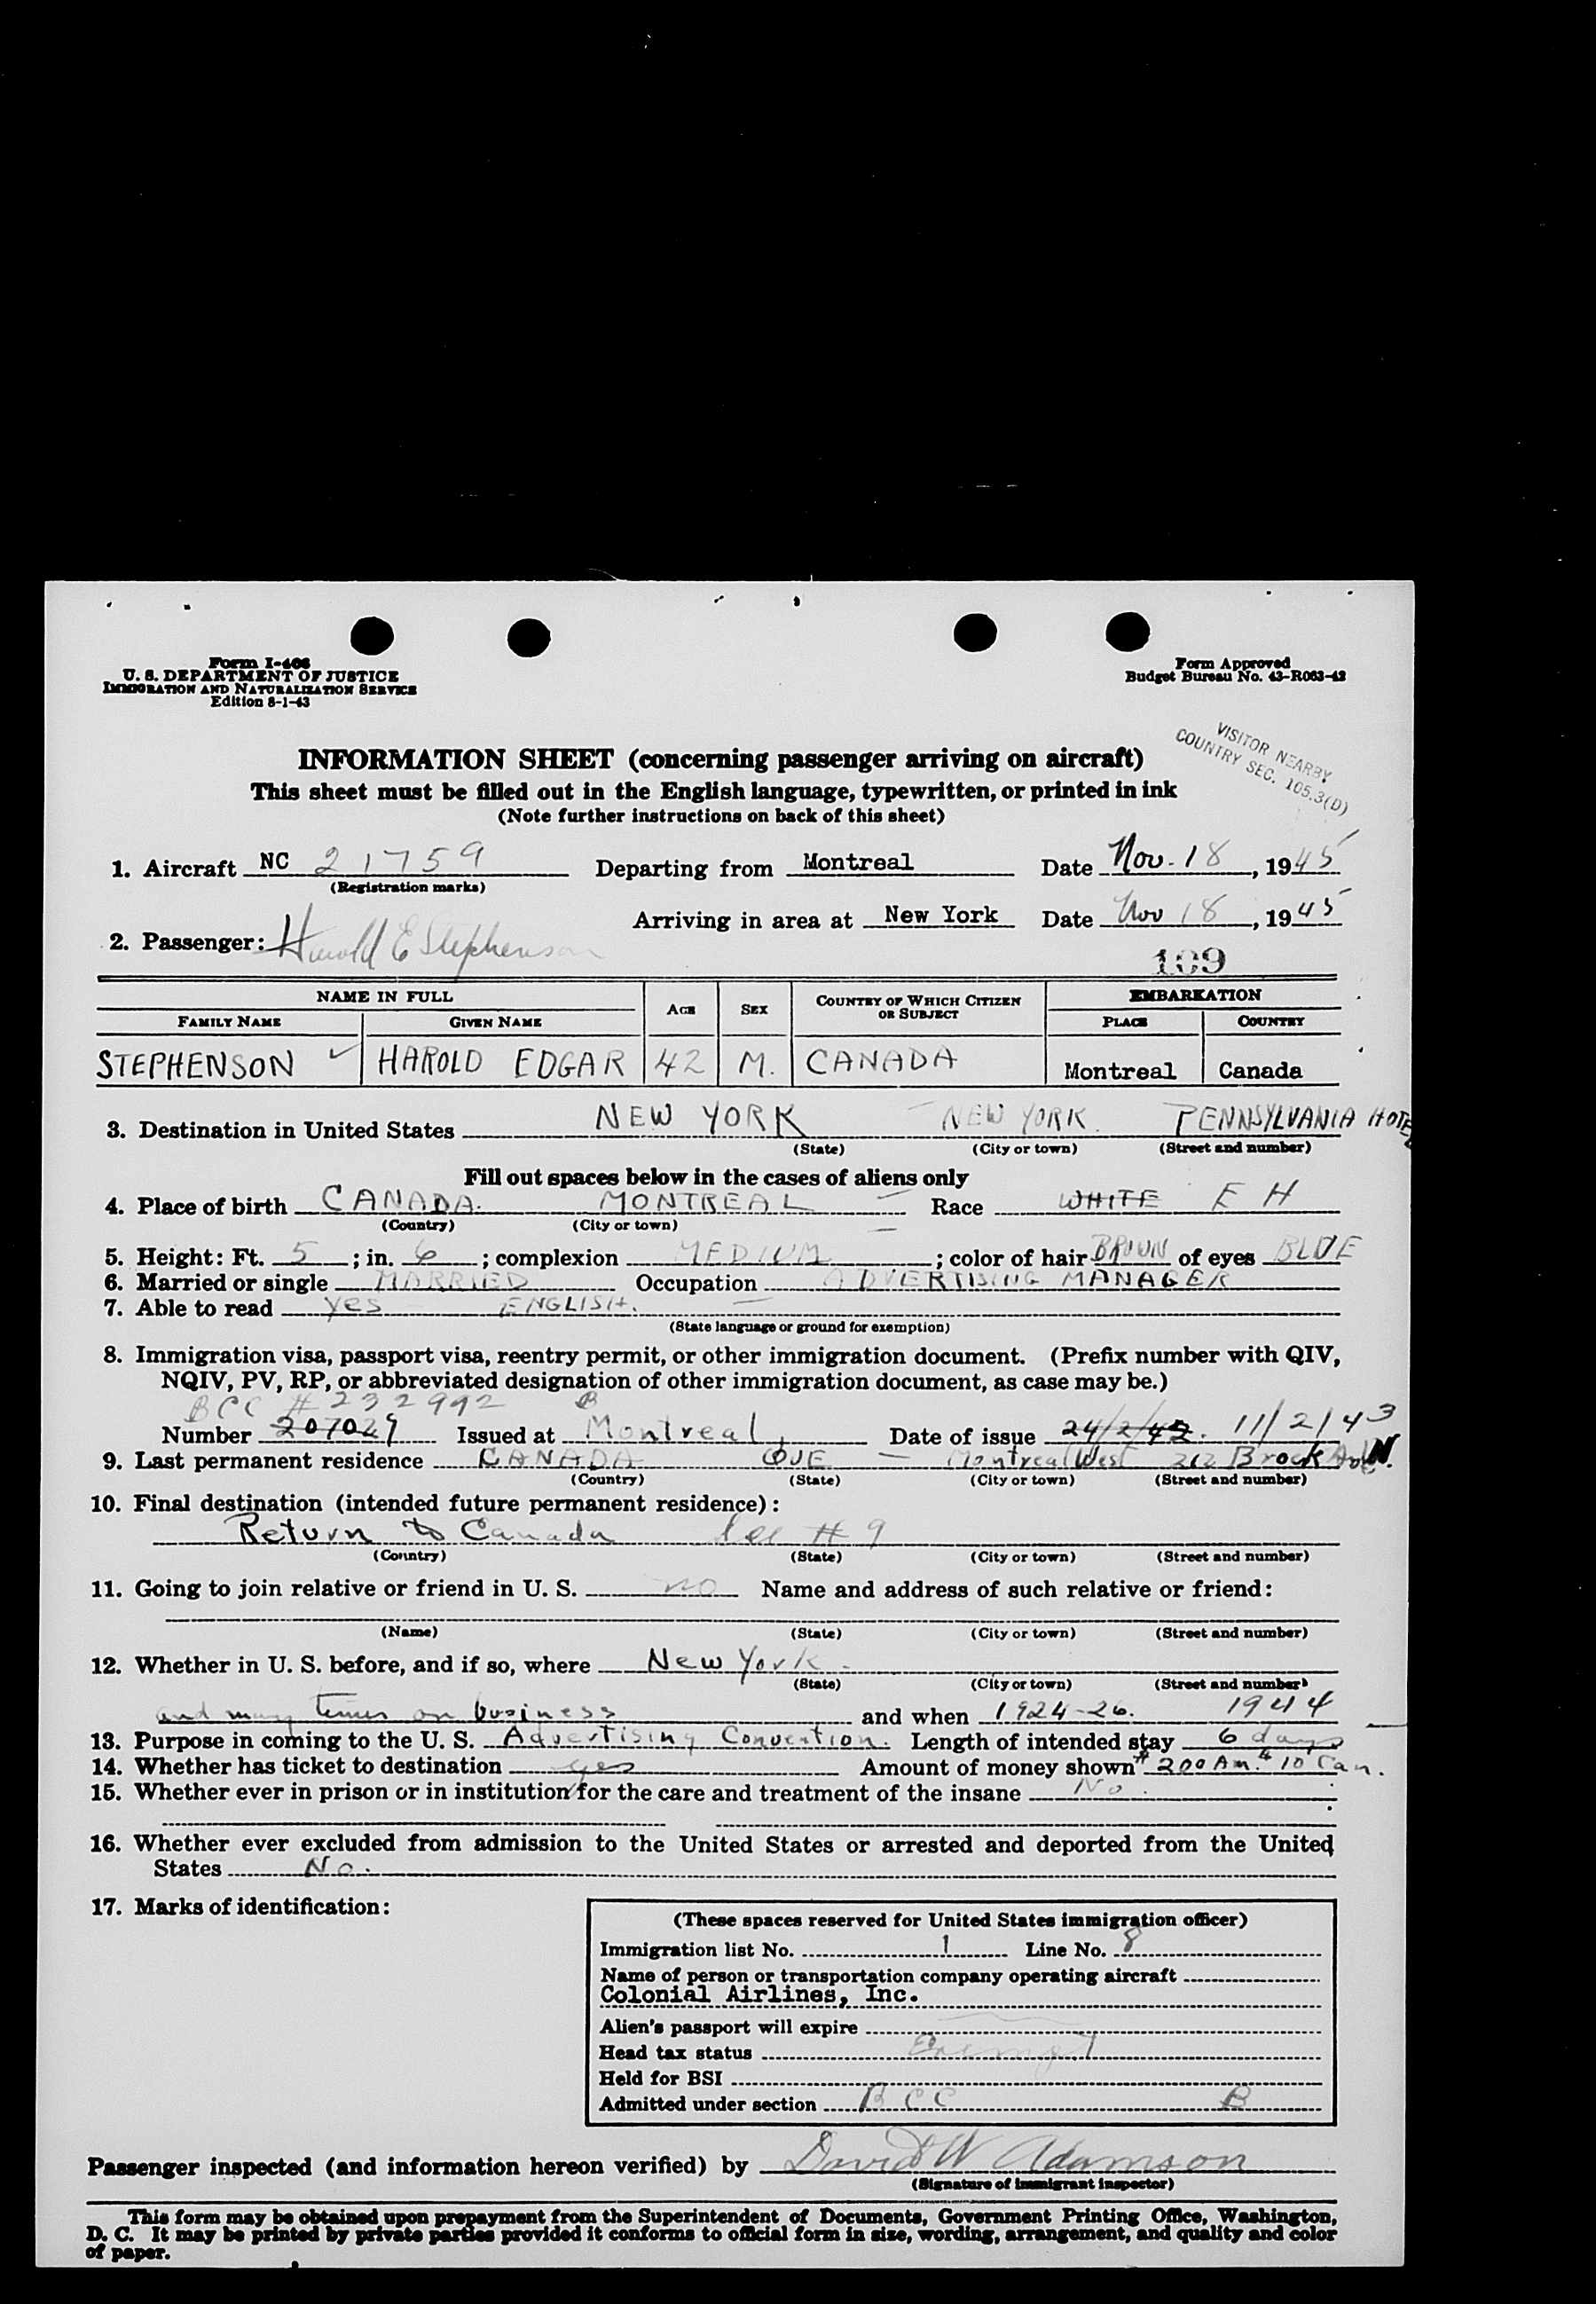 Form I-466
U. S. DEPARTMENT OF JUSTICE
IMMIGRATION AND NATURALIZATION SERVICE
Edition 8-1-43
Form Approved
Budget Bureau No. 43-R063-42
VISITOR NEARBY
COUNTRY SEC. 105.3(D)
INFORMATION SHEET (concerning passenger arriving on aircraft)
This sheet must be filled out in the English language, typewritten, or printed in ink
(Note further instructions on back of this sheet)
1. Aircraft NC 21759 Departing from Montreal Date Nov. 18, 1945
(Registration marks)
Arriving in area at New York Date Nov 18, 1945
2. Passenger: Harold E Stephenson
109
NAME IN FULL AGE SEX COUNTRY OF WHICH CITIZEN OR SUBJECT EMBARKATION
FAMILY NAME GIVEN NAME PLACE COUNTRY
STEPHENSON ✓ HAROLD EDGAR 42 M. CANADA Montreal Canada
3. Destination in United States NEW YORK NEW YORK. PENNSYLVANIA HOTEL
(State) (City or town) (Street and number)
Fill out spaces below in the cases of aliens only
4. Place of birth CANADA. MONTREAL Race WHITE E H
(Country) (City or town)
5. Height: Ft. 5; in. 6; complexion MEDIUM; color of hair BROWN of eyes BLUE
6. Married or single MARRIED Occupation ADVERTISING MANAGER
7. Able to read yes ENGLISH.
(State language or ground for exemption)
8. Immigration visa, passport visa, reentry permit, or other immigration document. (Prefix number with QIV,
NQIV, PV, RP, or abbreviated designation of other immigration document, as case may be.)
BCC # 232992 B
Number 207029 Issued at Montreal Date of issue 24/2/42. 11/2/43
9. Last permanent residence CANADA QUE — Montreal West 212 Brock Ave N.
(Country) (State) (City or town) (Street and number)
10. Final destination (intended future permanent residence):
Return to Canada see # 9
(Country) (State) (City or town) (Street and number)
11. Going to join relative or friend in U. S. no Name and address of such relative or friend:
(Name) (State) (City or town) (Street and number)
12. Whether in U. S. before, and if so, where New York
(State) (City or town) (Street and number)
and many times on business and when 1924-26. 1944
13. Purpose in coming to the U. S. Advertising Convention. Length of intended stay 6 days
14. Whether has ticket to destination yes Amount of money shown $200 Am. $10 Can.
15. Whether ever in prison or in institution for the care and treatment of the insane No.
16. Whether ever excluded from admission to the United States or arrested and deported from the United
States No.
17. Marks of identification:
(These spaces reserved for United States immigration officer)
Immigration list No. 1 Line No. 8
Name of person or transportation company operating aircraft
Colonial Airlines, Inc.
Alien's passport will expire
Head tax status Exempt
Held for BSI
Admitted under section BCC B
Passenger inspected (and information hereon verified) by David W Adamson
(Signature of immigrant inspector)
This form may be obtained upon prepayment from the Superintendent of Documents, Government Printing Office, Washington,
D. C. It may be printed by private parties provided it conforms to official form in size, wording, arrangement, and quality and color
of paper.